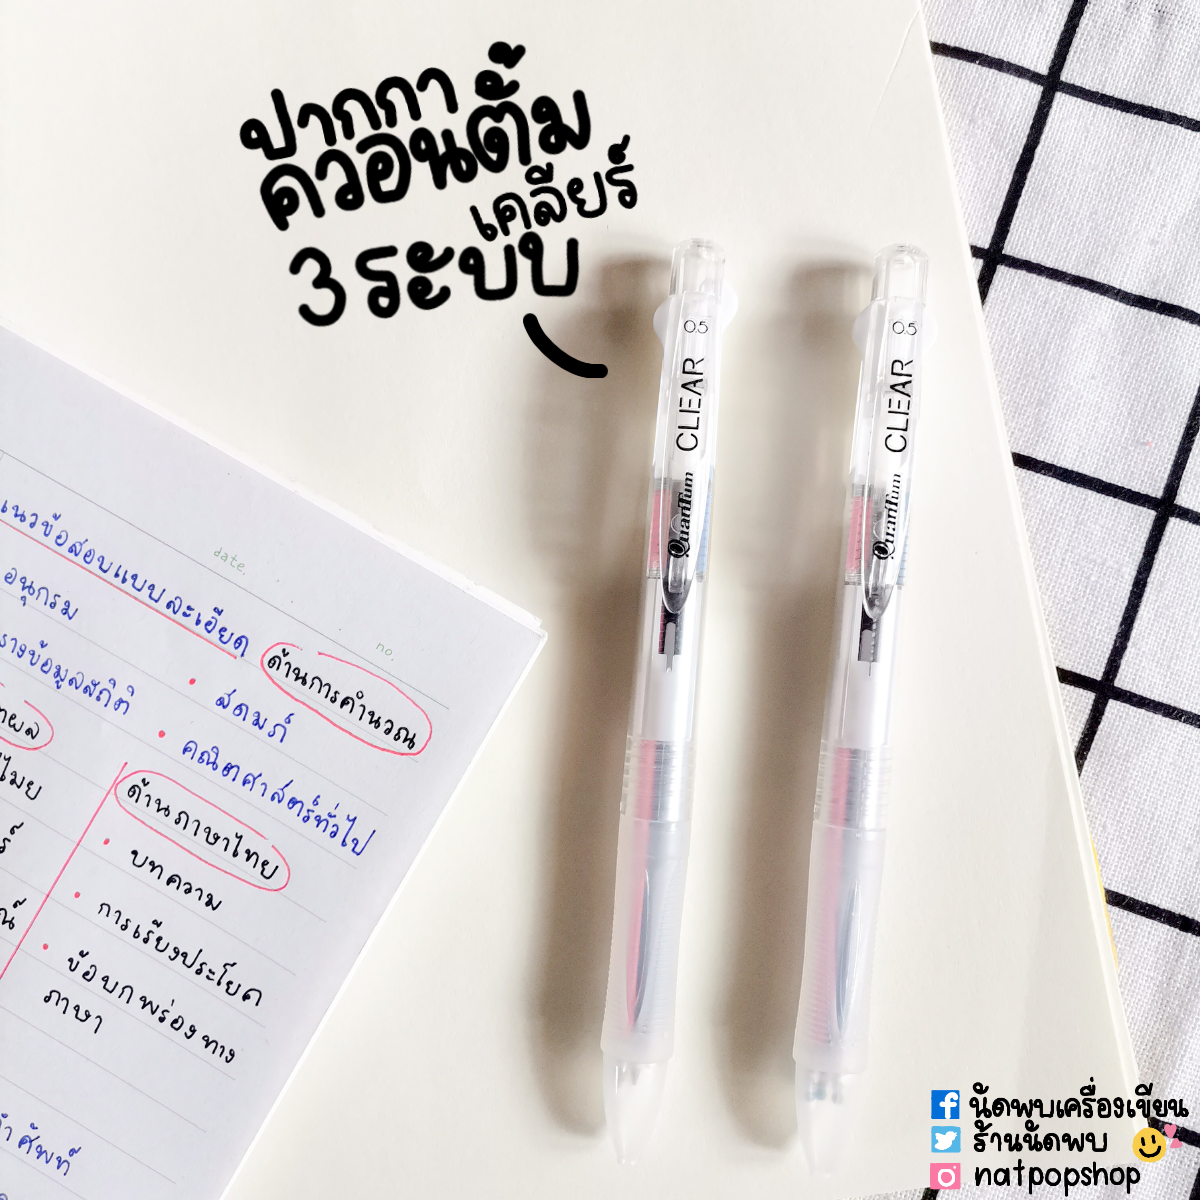 ปากกา
ควอนตั้ม
เคลียร์
3 ระบบ
0.5
CLEAR
Quantum
0.5
CLEAR
Quantum
date.
no.
แนวข้อสอบแบบละเอียด
อนุกรม
ด้านการคำนวณ
รางข้อมูลสถิติ
• สดมภ์
• คณิตศาสตร์ทั่วไป
ด้านภาษาไทย
• บทความ
• การเรียงประโยค
• ข้อบกพร่องทาง
ภาษา
ศัพท์
นัดพบเครื่องเขียน
ร้านนัดพบ
natpopshop